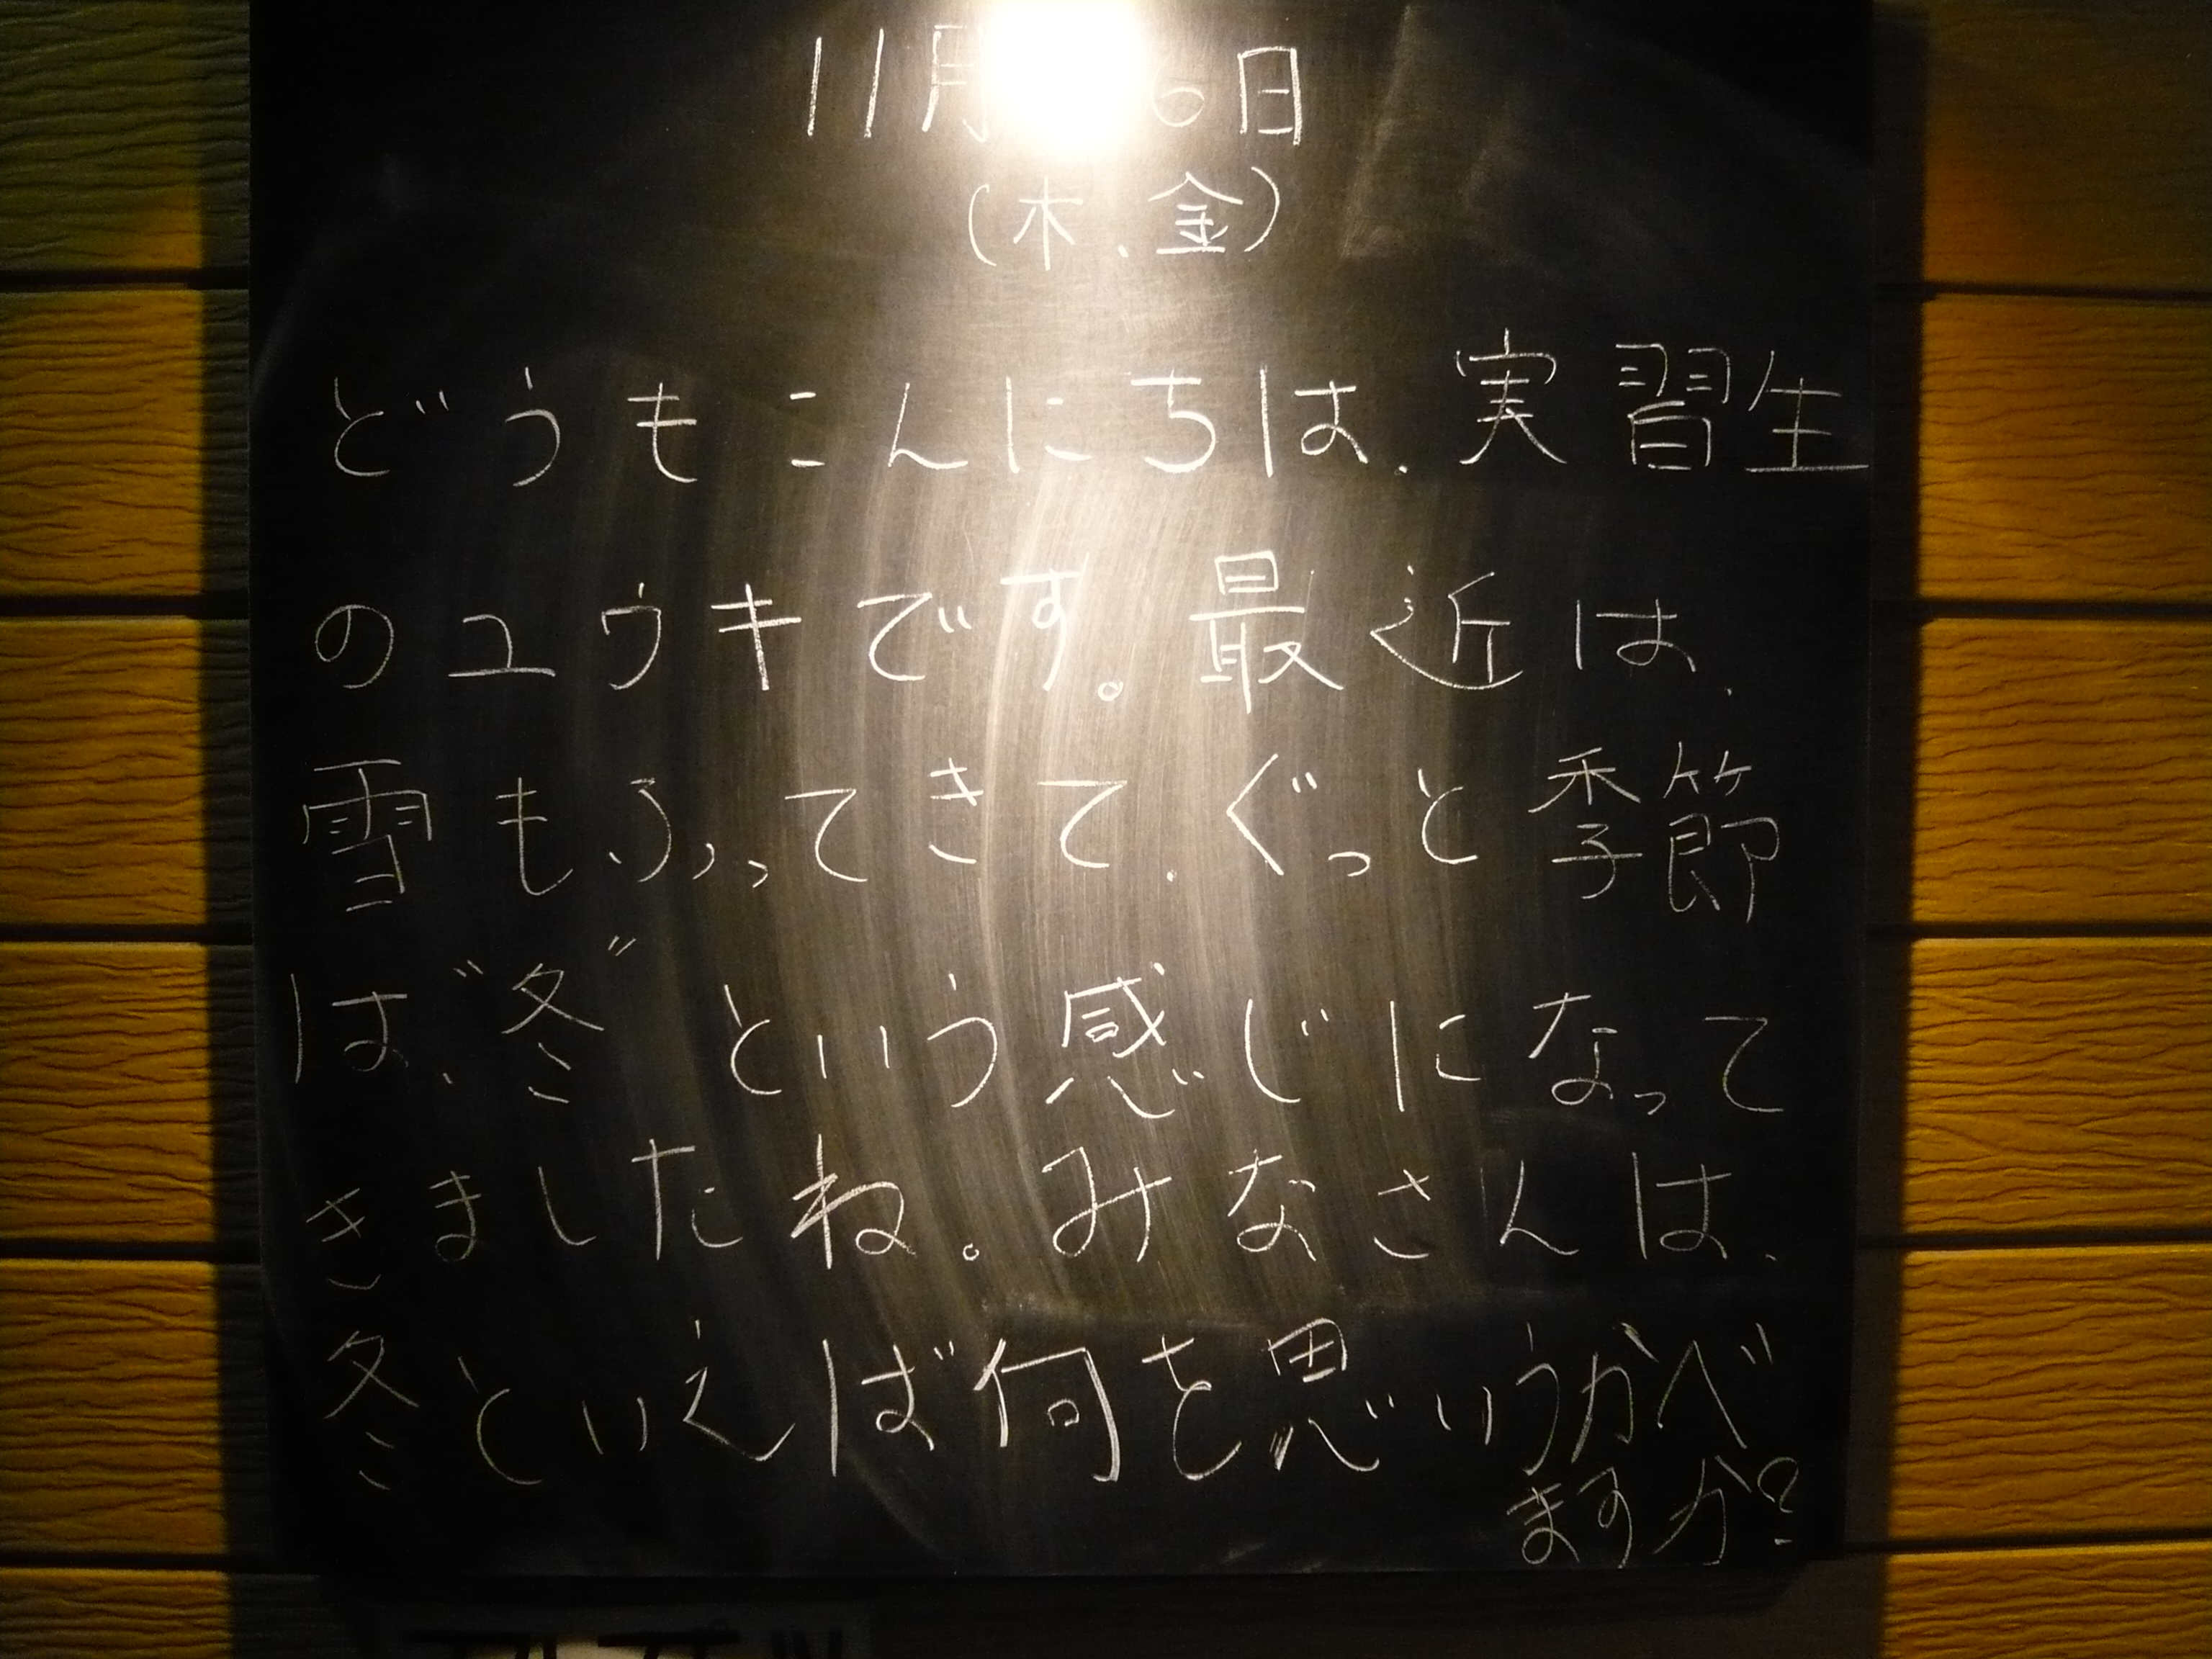 11月 6日
(木、金)
どうもこんにちは、実習生
のユウキです。最近は、
雪もふってきて、ぐっと季節
は、"冬"という感じになって
きましたね。みなさんは、
冬といえば何を思いうかべ
ますか?